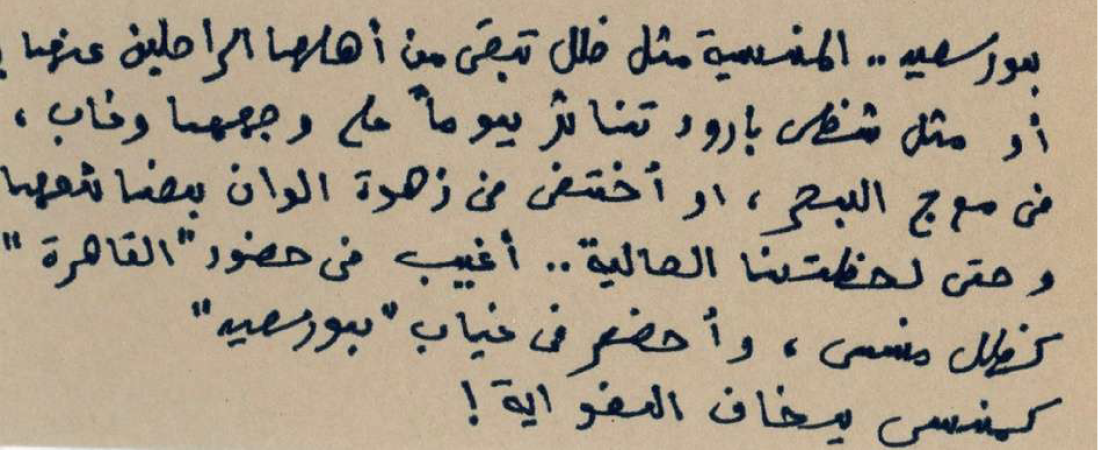 بورسعيد .. المنسية مثل ظل تبقى من أهلها الراحلين عنها
أو مثل شظى بارود تناثر يوماً على وجهها وغاب ،
فى موج البحر ، او أختفى فى زهوة الوان بضائعها
وحتى لحظتنا الحالية .. أغيب فى حضور "القاهرة"
كظل منسى ، وأحضر فى غياب "بورسعيد"
كمنسى يخاف الغواية !